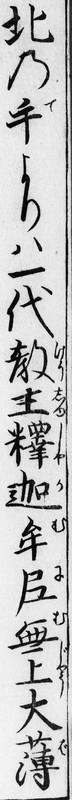 北乃手よりハ一代教主釋迦牟尼無上大薄